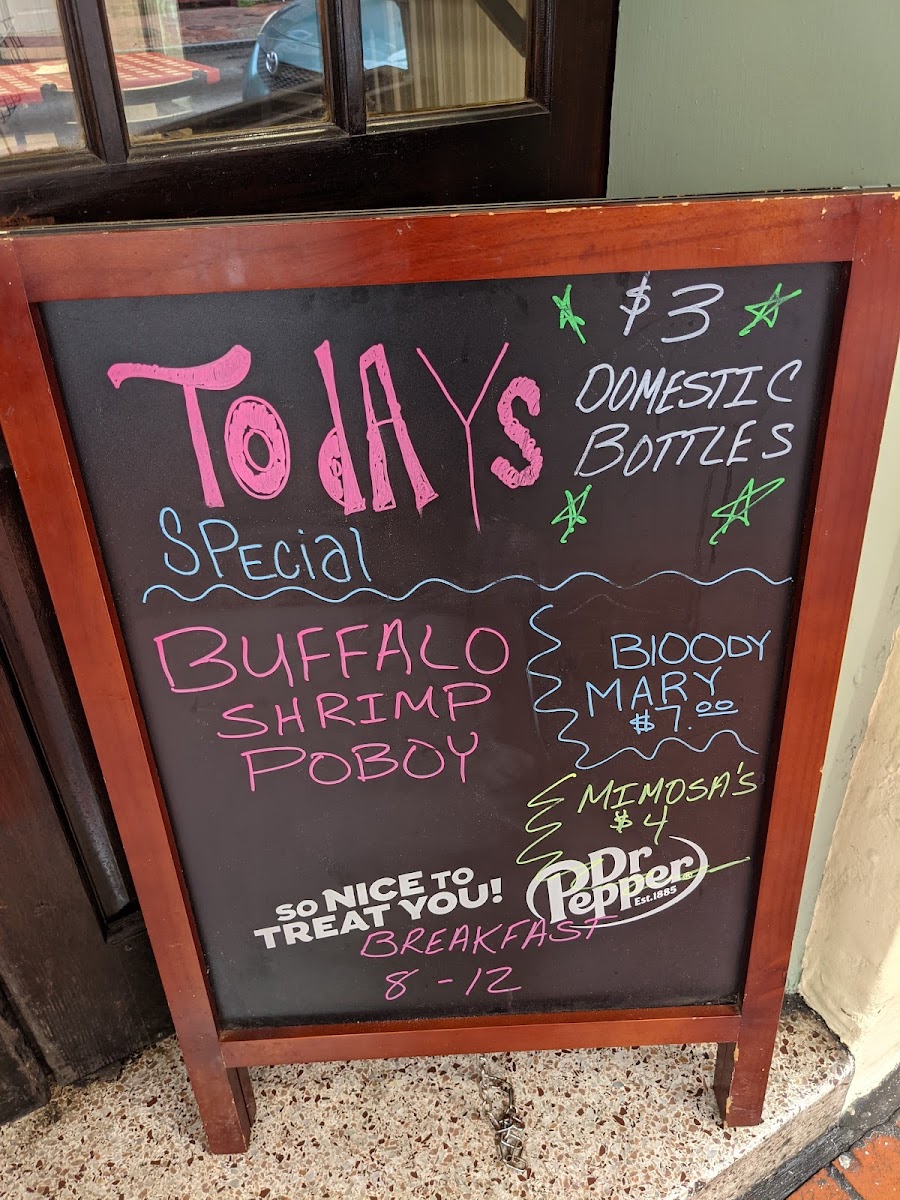 TOdAYS
SPEcial
$3
DOMESTIC
BOTTLES
BUFFALO
SHRIMP
POBOY
BlOODY
MARY
$7.00
MIMOSA'S
$4
SO NICE TO
TREAT YOU!
Dr
Pepper
Est.1885
BREAKFAST
8-12